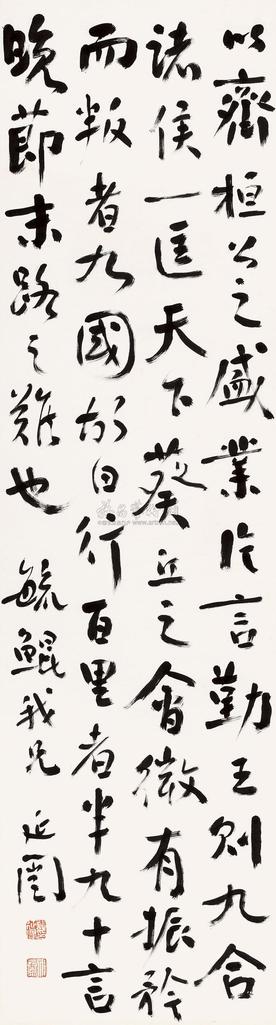 以齊桓公之盛業片言勤王則九合
諸侯一匡天下葵丘之會微有振矜
而叛者九國故曰行百里者半九十言
晚節末路之難也
毓鯤我兄 延闓